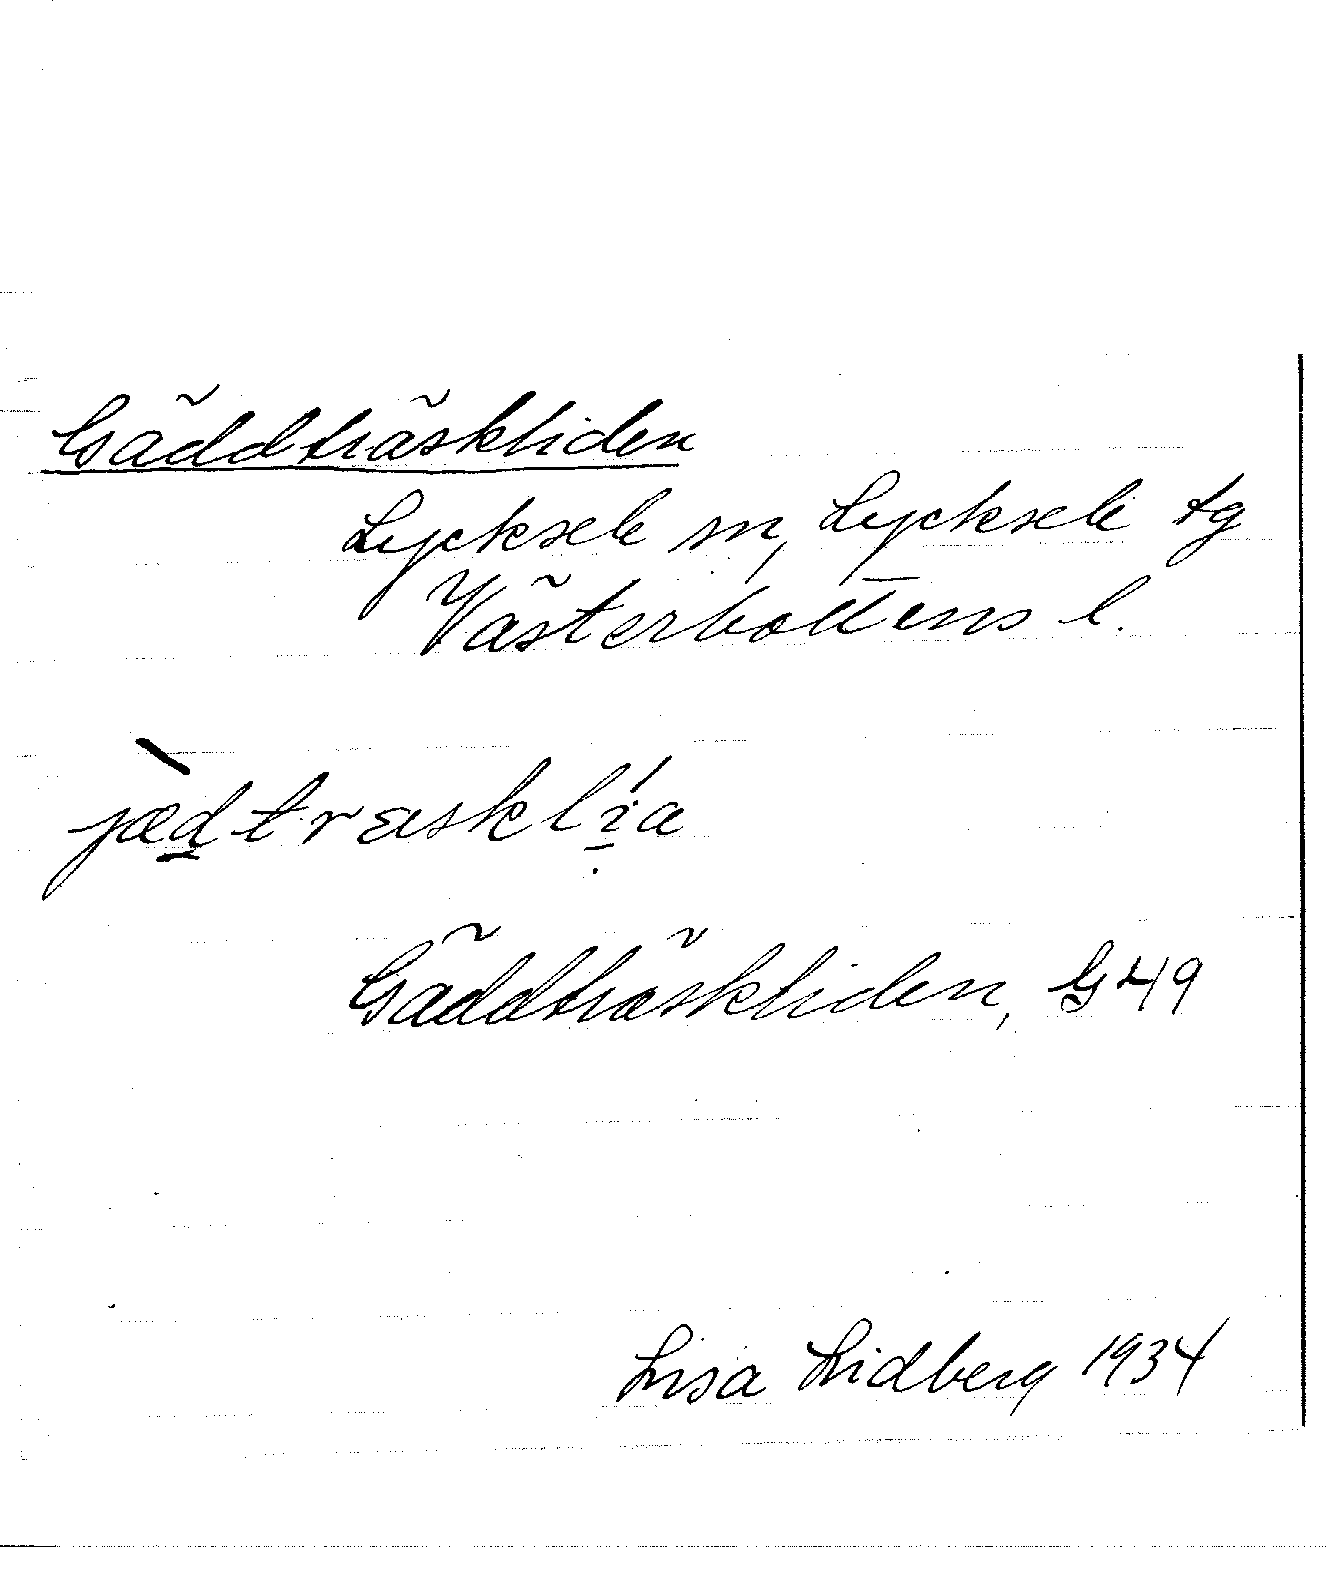 Gäddträskliden
Lycksele sn, Lycksele tg
Västerbottens l.
jæ̀d̲træsklí̲a
Gäddträskliden, G 49
Lisa Lidberg 1934